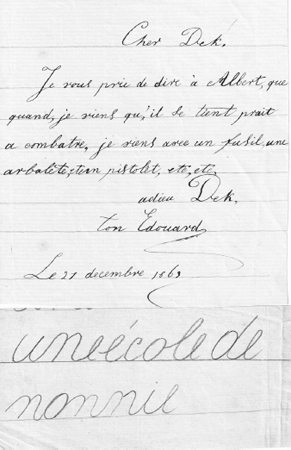 Cher Dek.
Je vous prie de dire à Albert, que
quand, je viens qu'il se tient prait
a combatre, je viens avec un fusil, une
arbalète, un pistolet, etc, etc.
adieu Dek.
ton Edouard
Le 21 decembre 1863
une école de
nonnie